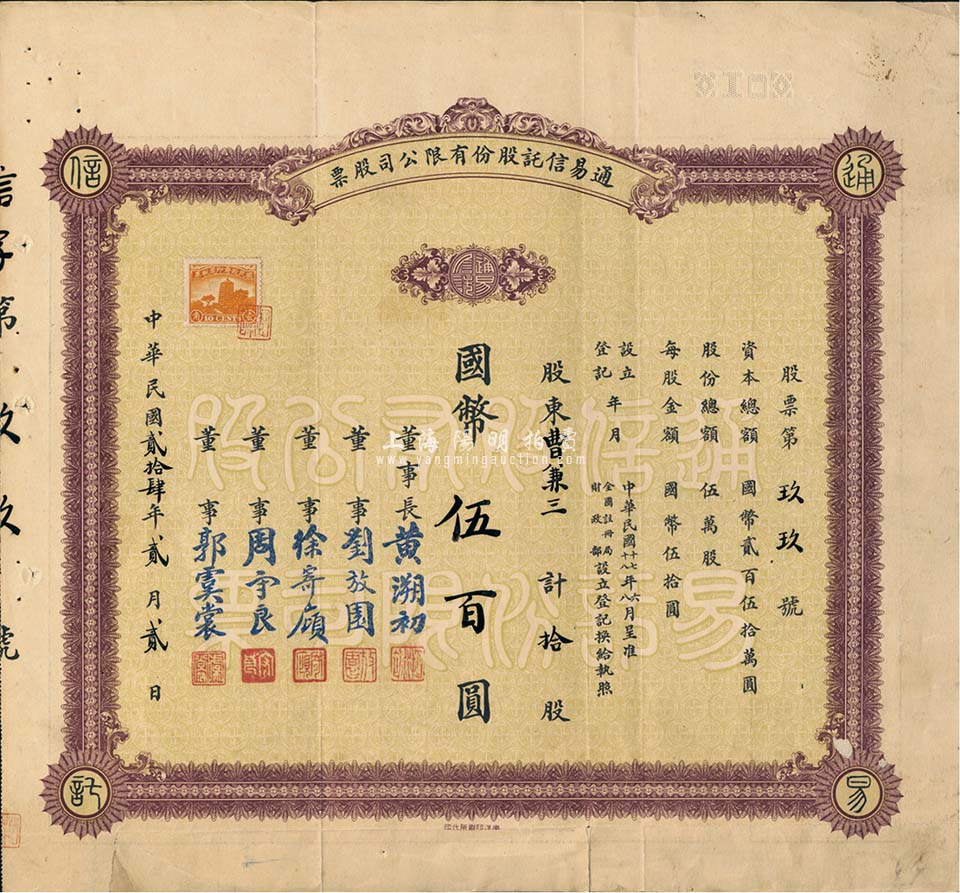 通易信託股份有限公司股票
通
易
信
託
股票第玖玖號
資本總額國幣貳百伍拾萬圓
股份總額伍萬股
每股金額國幣伍拾圓
設立
登記年月
中華民國十七年六月呈准
十八年八
全國註冊局
財政部
設立登記換給執照
股東曹兼三計拾股
國幣伍百圓
董事長黃溯初
董事劉放園
董事徐寄廎
董事周守良
董事郭虞裳
中華民國貳拾肆年貳月貳日
10 CENTS
通易信託股份有限公司股票
信字第玖玖號
上海陽明拍賣
www.yangmingauction.com